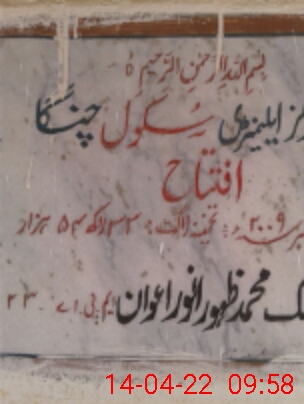 بسم اللہ الرحمٰن الرحیم
ایلیمنٹری سکول چنگا
افتتاح
۲۰۰۹ء تخمینہ لاگت: ۳۳ لاکھ ۵۴ ہزار
محمد ظہور انور اعوان ایم پی اے ۲۳
14-04-22 09:58